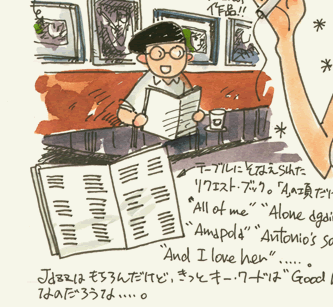 作品!!
テーブルにそなえられた
リクエスト・ブック。7、8頁だけ
"All of me" "Alone again
"Amapola" "Antonio's so
"And I love her" ‥‥。
Jazzはもちろんだけど、きっとキー・ワードは"Good
なのだろうな‥‥。